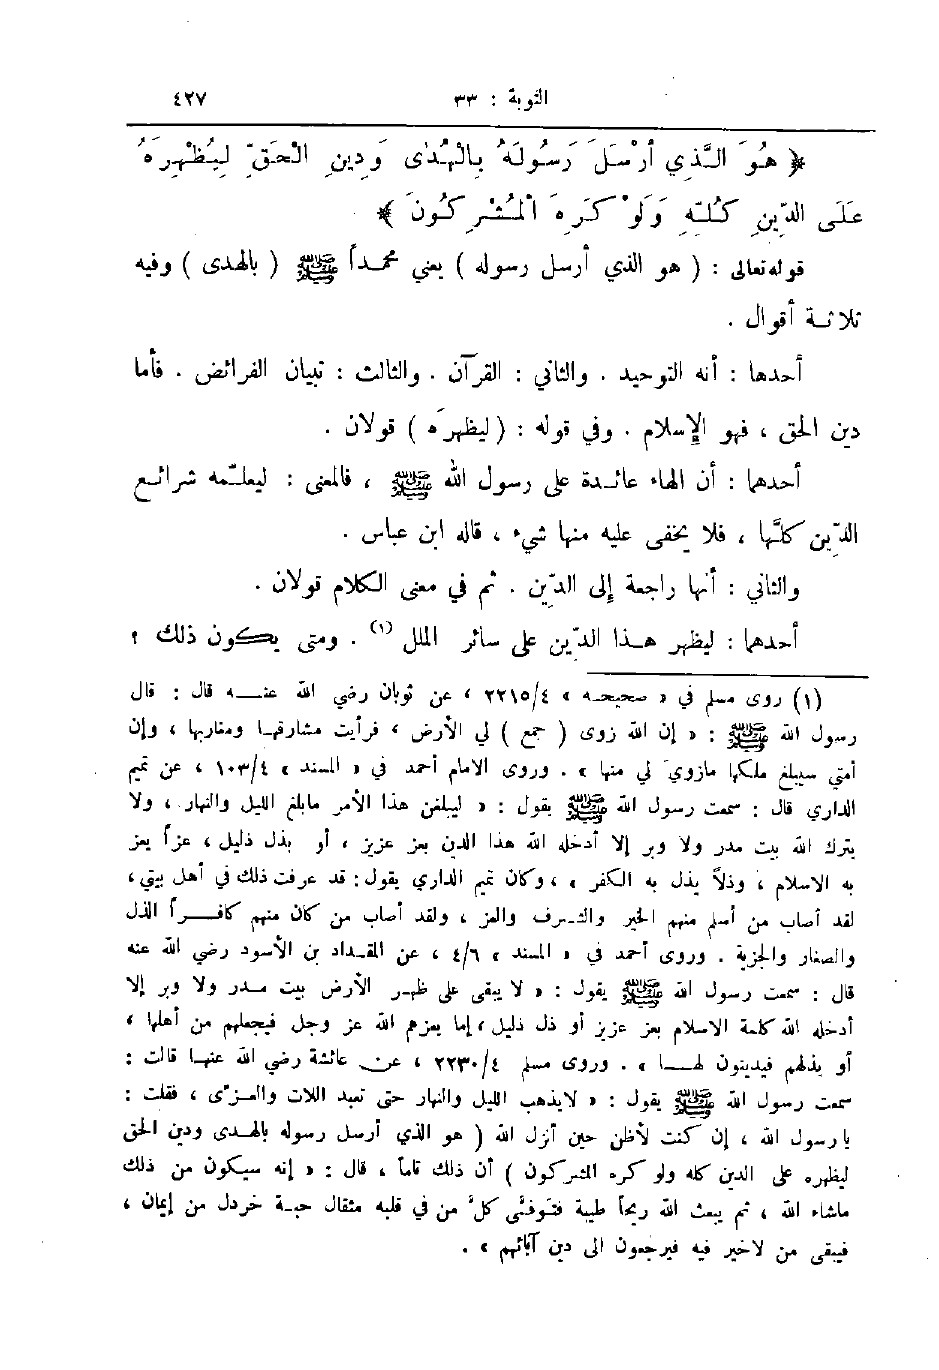 التوبة : ٣٣ ٤٢٧
﴿ هُوَ الَّذِي أَرْسَلَ رَسُولَهُ بِالْهُدَى وَدِينِ الْحَقِّ لِيُظْهِرَهُ
عَلَى الدِّينِ كُلِّهِ وَلَوْ كَرِهَ الْمُشْرِكُونَ ﴾
قوله تعالى : ( هو الذي أرسل رسوله ) يعني محمداً ﷺ ( بالهدى ) وفيه
ثلاثة أقوال .
أحدها : أنه التوحيد . والثاني : القرآن . والثالث : تبيان الفرائض . فأما
دين الحق ، فهو الإسلام . وفي قوله : ( ليظهرَه ) قولان .
أحدهما : أن الهاء عائدة على رسول الله ﷺ ، فالمعنى : ليعلّمه شرائع
الدِّين كلَّها ، فلا يخفى عليه منها شيء ، قاله ابن عباس .
والثاني : أنها راجعة إلى الدِّين . ثم في معنى الكلام قولان .
أحدهما : ليظهر هذا الدِّين على سائر الملل (١) . ومتى يكون ذلك ؟
(١) روى مسلم في « صحيحه » ٢٢١٥/٤ ، عن ثوبان رضي الله عنه قال : قال
رسول الله ﷺ : « إن الله زوى ( جمع ) لي الأرض ، فرأيت مشارقها ومغاربها ، وإن
أمتي سيبلغ ملكها مازوي لي منها » . وروى الامام أحمد في « المسند » ١٠٣/٤ ، عن تميم
الداري قال : سمعت رسول الله ﷺ يقول : « ليبلغن هذا الأمر مابلغ الليل والنهار ، ولا
يترك الله بيت مدر ولا وبر إلا أدخله الله هذا الدين بعز عزيز ، أو بذل ذليل ، عزاً يعز
به الاسلام ، وذلاً يذل به الكفر » ، وكان تميم الداري يقول : قد عرفت ذلك في أهل بيتي ،
لقد أصاب من أسلم منهم الخير والشرف والعز ، ولقد أصاب من كان منهم كافراً الذل
والصغار والجزية . وروى أحمد في « المسند » ٤/٦ ، عن المقداد بن الأسود رضي الله عنه
قال : سمعت رسول الله ﷺ يقول : « لا يبقى على ظهر الأرض بيت مدر ولا وبر إلا
أدخله الله كلمة الاسلام بعز عزيز أو ذل ذليل ، إما يعزهم الله عز وجل فيجعلهم من أهلها ،
أو يذلهم فيدينون لها » . وروى مسلم ٢٢٣٠/٤ ، عن عائشة رضي الله عنها قالت :
سمعت رسول الله ﷺ يقول : « لايذهب الليل والنهار حتى تعبد اللات والعزى » ، فقلت :
يا رسول الله ، إن كنت لأظن حين أنزل الله ( هو الذي أرسل رسوله بالهدى ودين الحق
ليظهره على الدين كله ولو كره المشركون ) أن ذلك تاماً ، قال : « إنه سيكون من ذلك
ماشاء الله ، ثم يبعث الله ريحاً طيبة فتوفَّى كلَّ من في قلبه مثقال حبة خردل من إيمان ،
فيبقى من لاخير فيه فيرجعون الى دين آبائهم » .